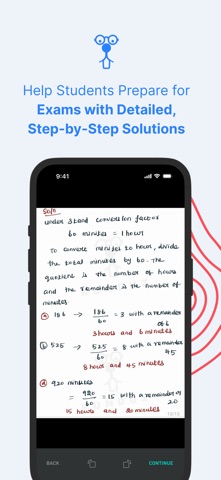 Help Students Prepare for
Exams with Detailed,
Step-by-Step Solutions
9:41
Soln
understand conversion factor
60 minutes = 1 hour
To convert minutes to hour, divide
the total minutes by 60. The
quotient is the number of hours
and the remainder is the number of
minutes
a 186 → 186/60 = 3 with a remainder
of 6
3 hours and 6 minutes
b 525 → 525/60 = 8 with a remainder
45
8 hours and 45 minutes
d 920 minutes
→ 920/60 = 15 with a remainder of
20
15 hours and 20 minutes
BACK
CONTINUE